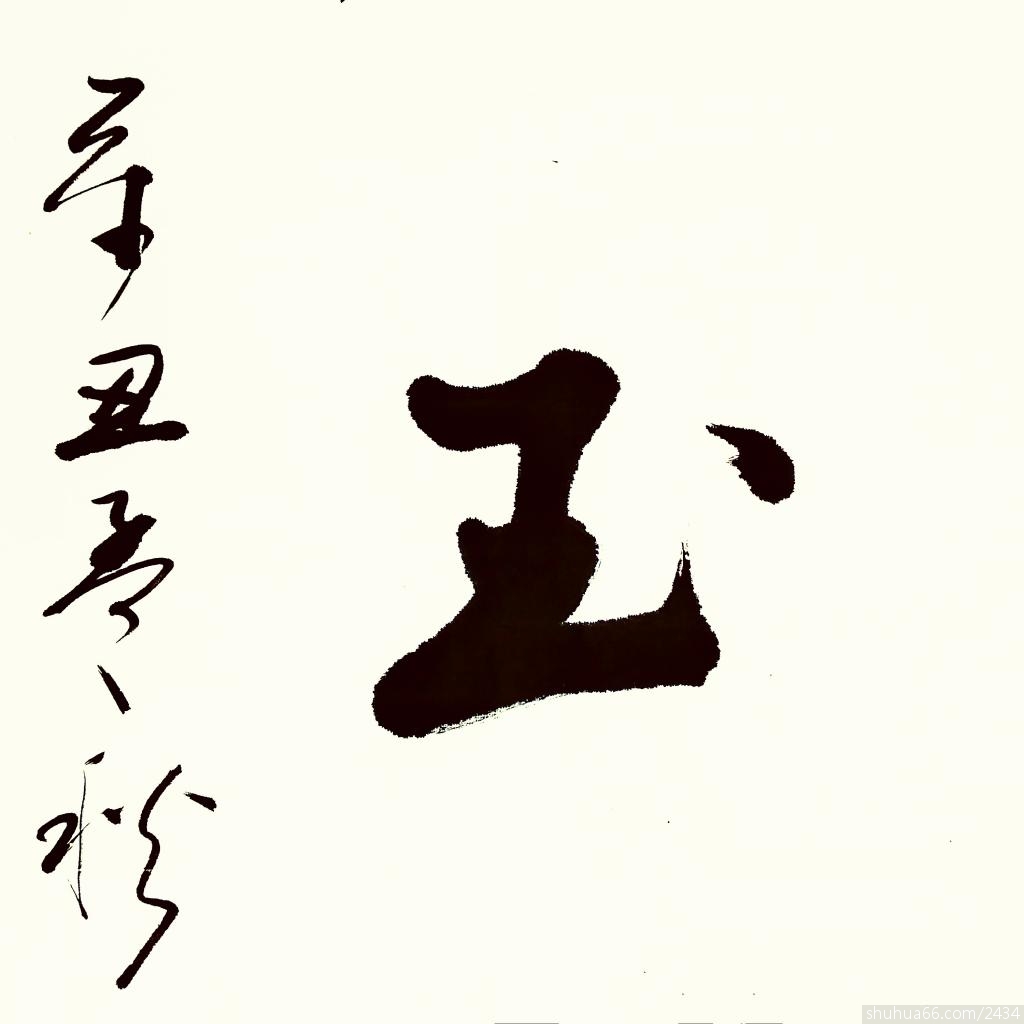 玉
辛丑孟秋
shuhua66.com/2434